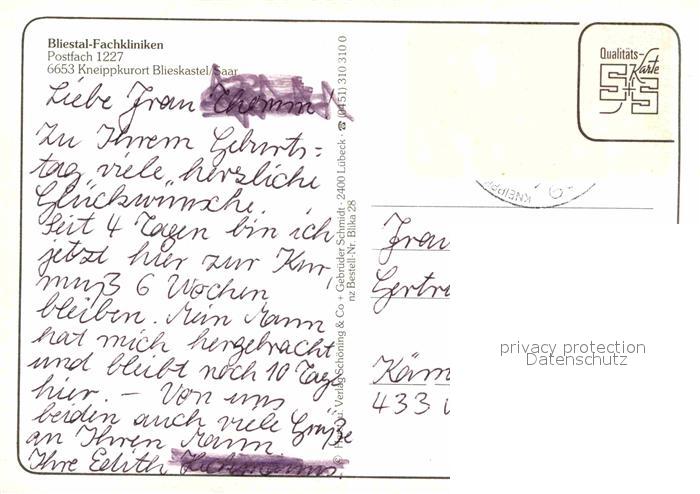 Bliestal-Fachkliniken
Postfach 1227
6653 Kneippkurort Blieskastel/Saar
Liebe Frau
Zu Ihrem Geburts=
tag viele herzliche
Glückwünsche,
Seit 4 Tagen bin ich
jetzt hier zur Kur,
muß 6 Wochen
bleiben. Mein Mann
hat mich hergebracht
und bleibt noch 10 Tage
hier. – Von uns
beiden auch viele Grüße
an Ihren Mann
Ihre Edith
u. Verlag Schöning & Co + Gebrüder Schmidt · 2400 Lübeck · ☎ (0451) 310 310 0
nz Bestell-Nr. Blika 28
Qualitäts-
Karte
S+S
KNEIPP
Frau
Gertru
Käm
433
privacy protection
Datenschutz